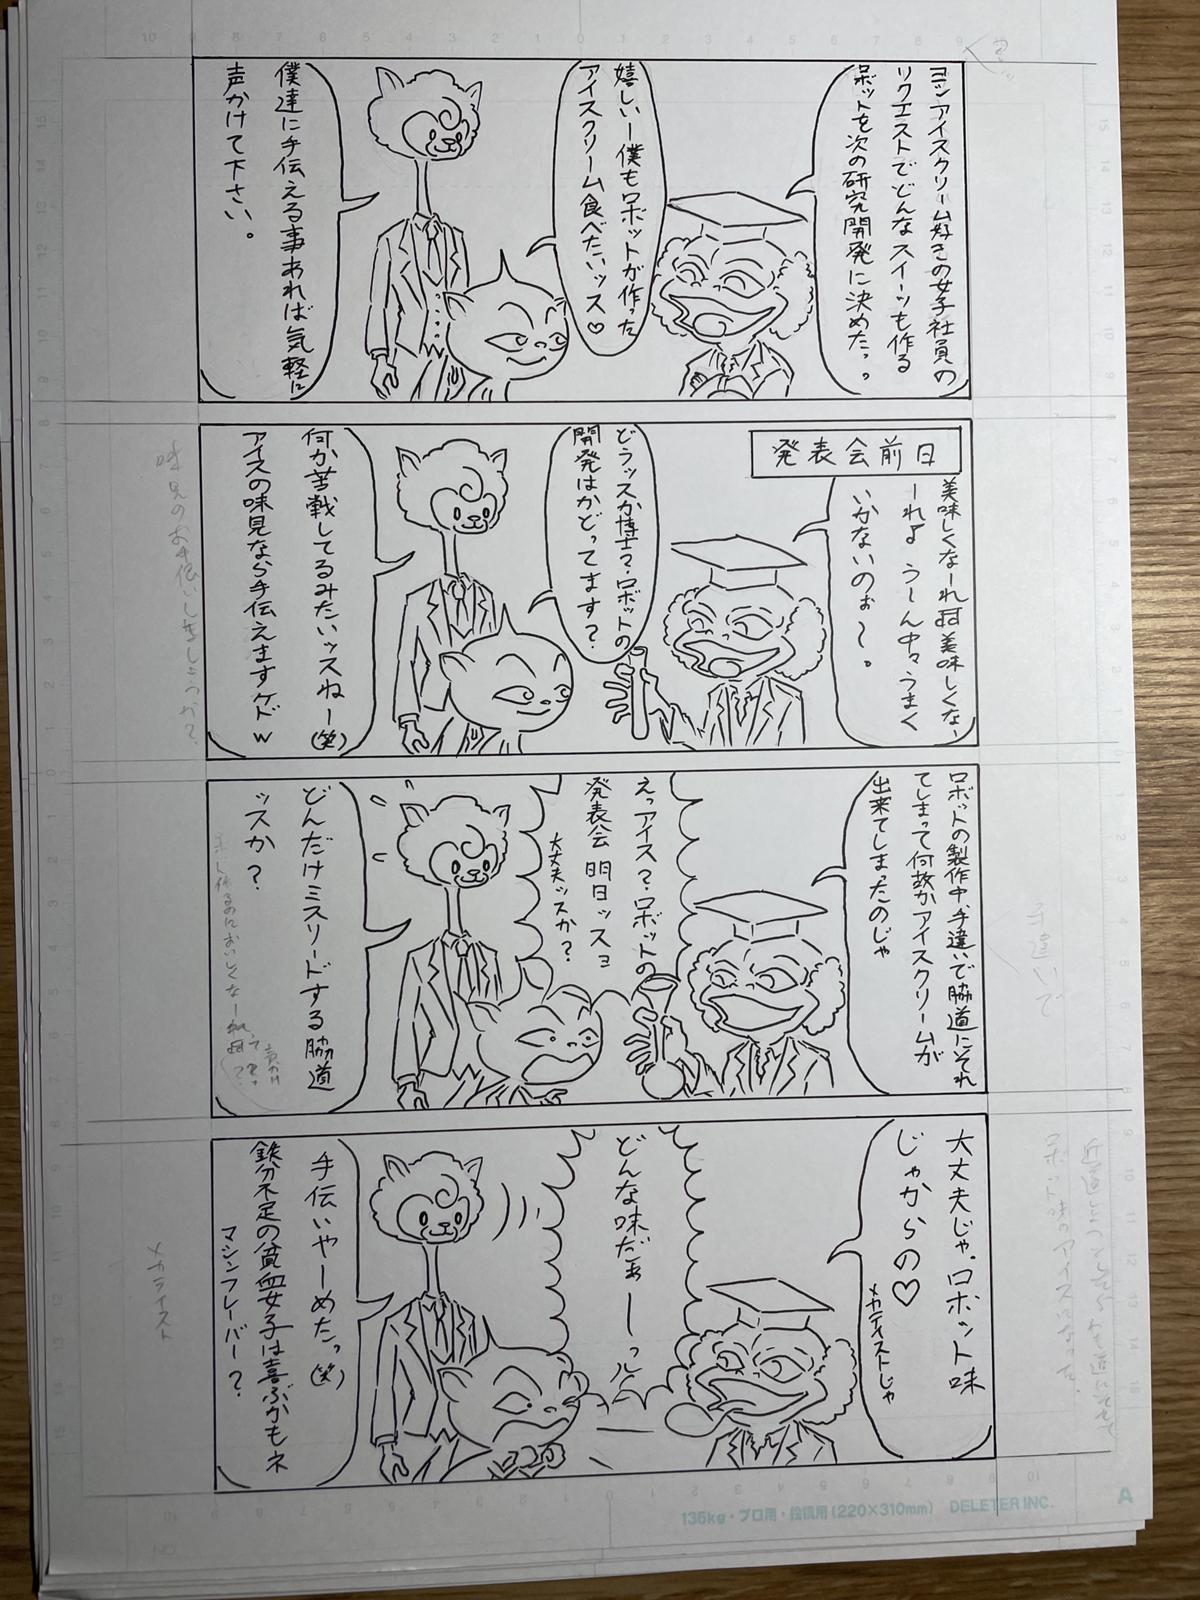 ヨシアイスクリーム好きの女子社員の
リクエストでどんなスイーツも作る
ロボットを次の研究開発に決めたっ。
嬉しいー僕もロボットが作った
アイスクリーム食べたいッス♡
僕達に手伝える事あれば気軽に
声かけて下さい。
発表会前日
美味しくなーれ 美味しくなー
ーれ うーん中々うまく
いかないのぉ〜。
どうッスか博士?ロボットの
開発はかどってます?
何か苦戦してるみたいッスねー(笑)
アイスの味見なら手伝えますケドw
味見のお手伝いしましょうか?
ロボットの製作中、手違いで脇道にそれ
てしまって何故かアイスクリームが
出来てしまったのじゃ
えっアイス?ロボットの
発表会 明日ッスョ
大丈夫ッスか?
どんだけミスリードする脇道
ッスか?
手違いで
大丈夫じゃ。ロボット味
じゃからの♡
メカテイストじゃ
どんな味だぁーーっ
手伝いやーめたっ(笑)
鉄分不足の貧血女子は喜ぶかもネ
マシンフレーバー?
135kg・プロ用・投稿用(220×310mm) DELETER INC.
A